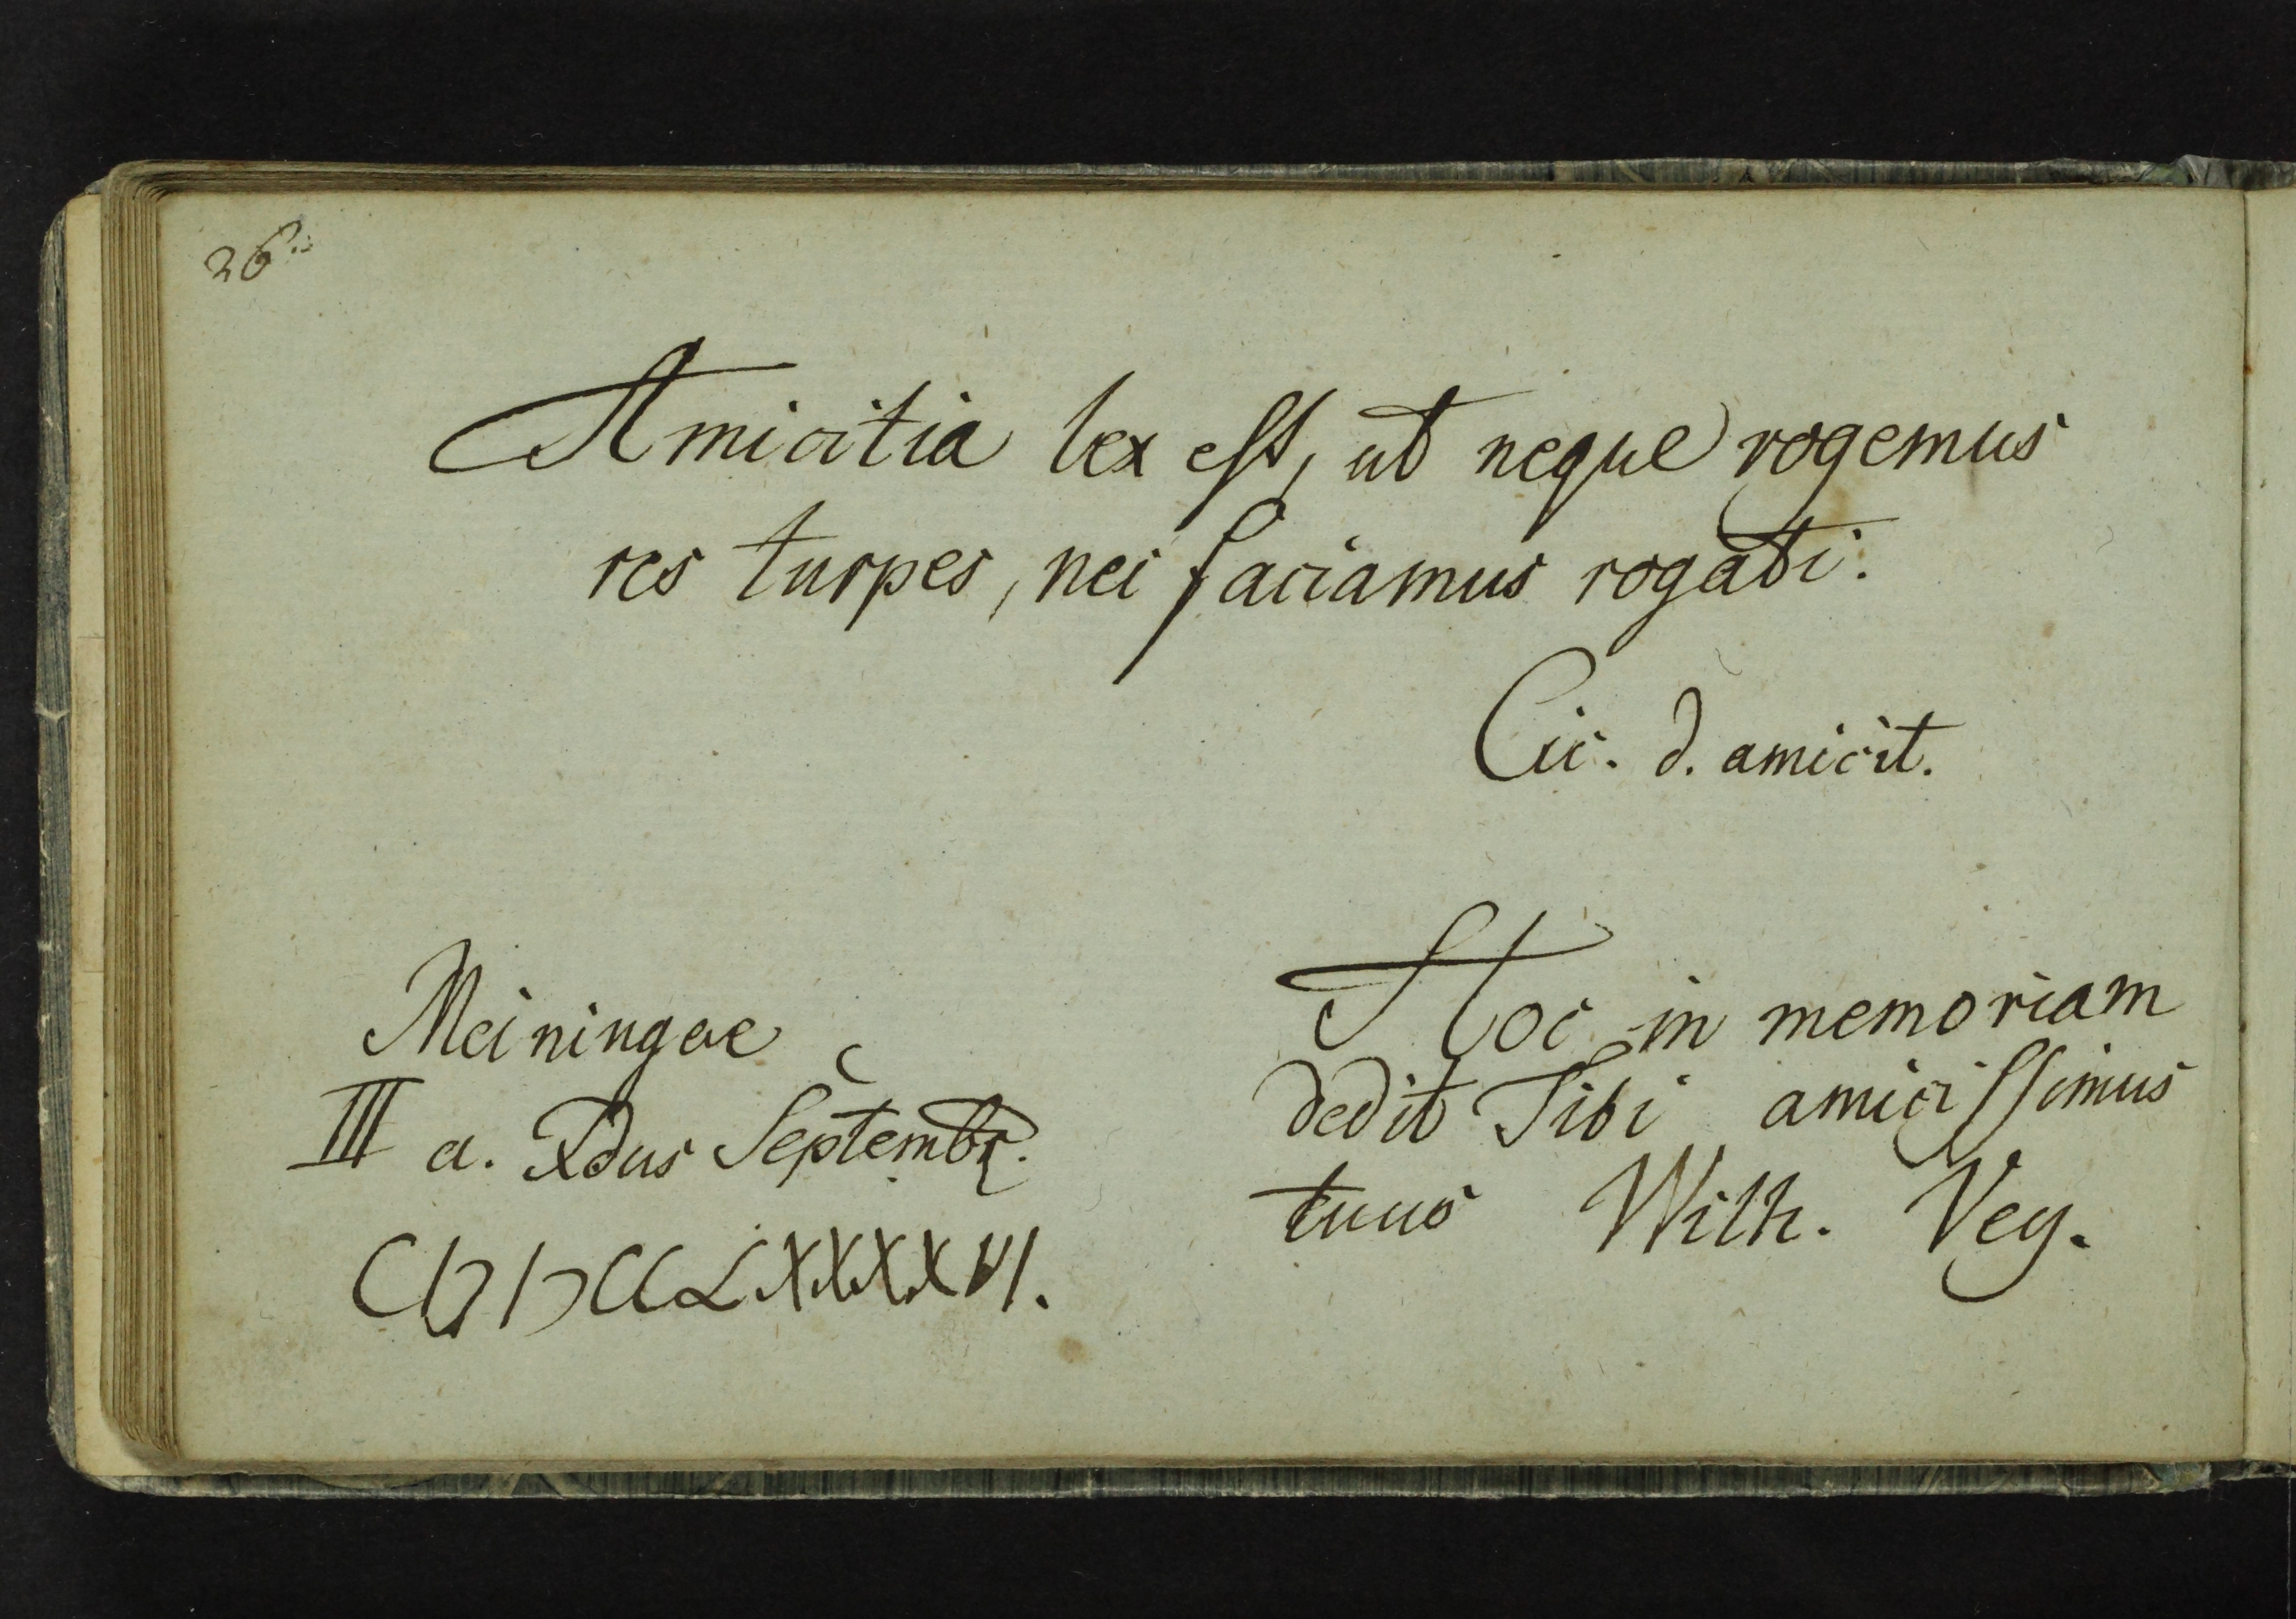 26.
Amicitia lex est, ut neque rogemus
res turpes, nec faciamus rogati.
Cic. d. amicit.
Meiningae
III a. Idus Septembr.
CIƆIƆCCLXXXXVI.
Hoc in memoriam
dedit Tibi amicissimus
tuus Wilh. Vey.